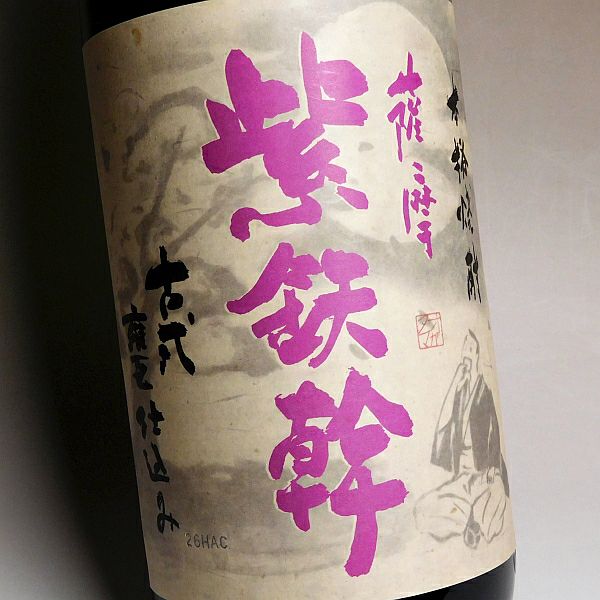 本格焼酎
薩摩
紫鉄幹
古式
甕壺仕込み
26HAC